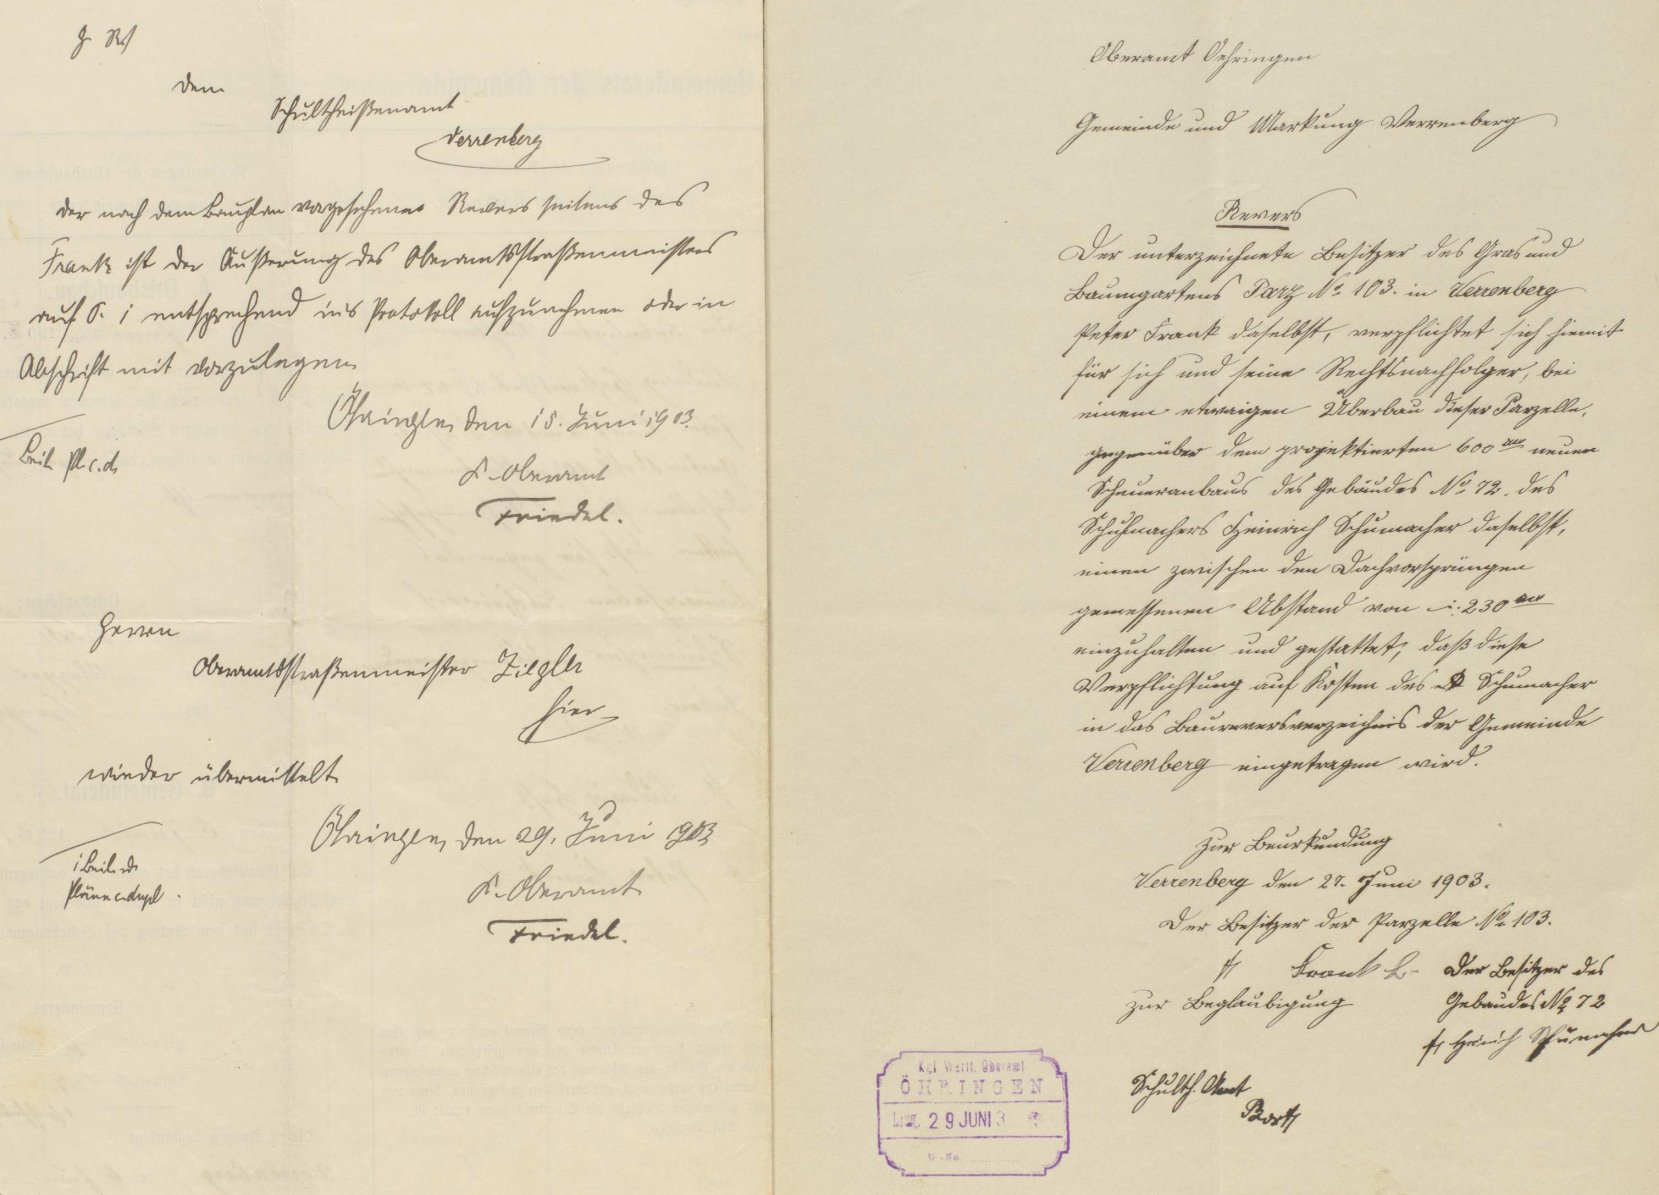 g. R.
dem
Schultheißenamt
Verrenberg
der nach dem Bauplan vorgesehene Revers seitens des
Frank ist der Äußerung des Oberamtsstraßenmeisters
auf S. 1 entsprechend ins Protokoll aufzunehmen oder in
Abschrift mit vorzulegen.
Öhringen, den 15. Juni 1903.
Beil. Pl. c. d.
K. Oberamt
Friedel.
Herrn
Oberamtsstraßenmeister Ziegler
hier
wieder übermittelt.
Öhringen, den 29. Juni 1903
1 Beil. &
Pläne c. dupl.
K. Oberamt
Friedel.
Oberamt Oehringen
Gemeinde und Markung Verrenberg
Revers
Der unterzeichnete Besitzer des Gras und
Baumgartens Parz No. 103. in Verrenberg
Peter Frank daselbst, verpflichtet sich hiemit
für sich und seine Rechtsnachfolger, bei
einem etwaigen Überbau dieser Parzelle,
gegenüber dem projektierten 600 cm neuen
Scheueranbaus des Gebäudes No 72. des
Schuhmachers Heinrich Schumacher daselbst,
einen zwischen den Dachvorsprüngen
gemessenen Abstand von i. 230 cm
einzuhalten und gestattet, daß diese
Verpflichtung auf Kosten des Schumacher
in das Baureversverzeichnis der Gemeinde
Verrenberg eingetragen wird.
Zur Beurkundung
Verrenberg den 27. Juni 1903.
Der Besitzer der Parzelle No 103.
Frank
Der Besitzer des
Gebäudes No 72
Heinrich Schumacher
zur Beglaubigung
Schulth. Amt
Kgl. Württ. Oberamt
ÖHRINGEN
Eing. 29 JUNI 3
B.-No.